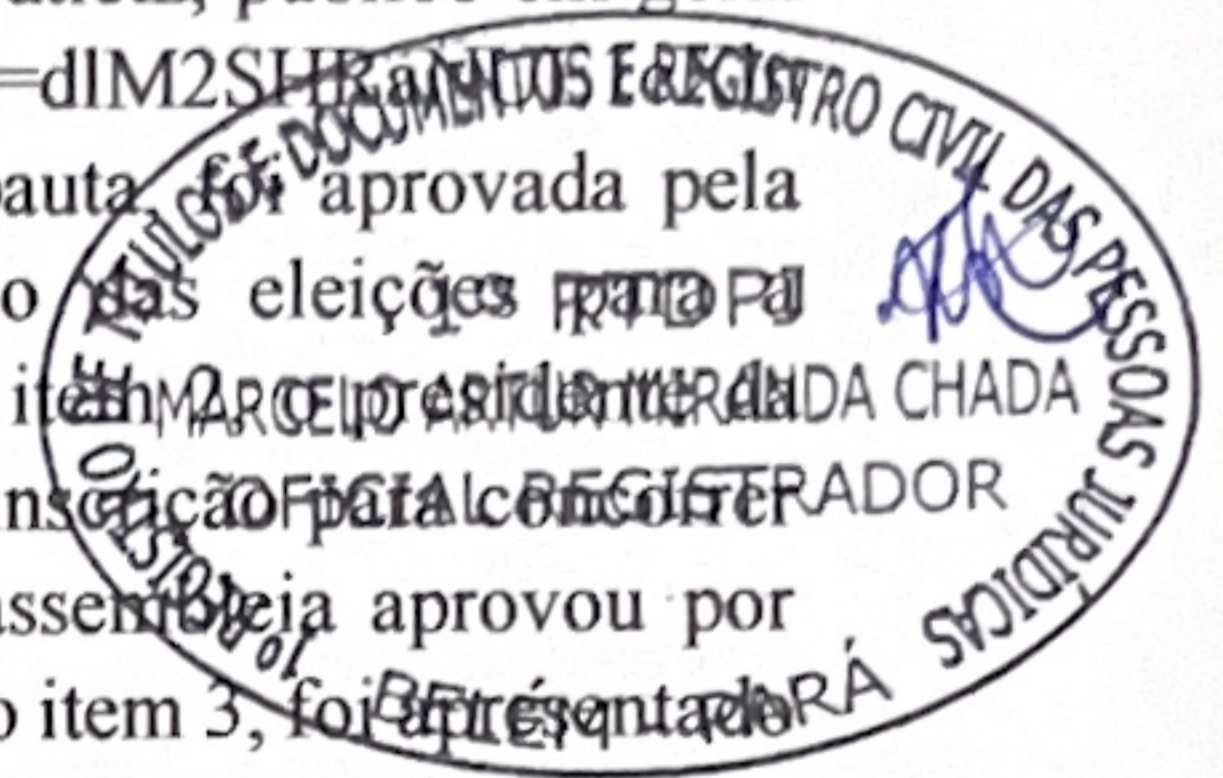 =dlM2SHRa
pauta, foi aprovada pela
o das eleições para a
item 2, o presidente da
inscrição para concorrer
assembleia aprovou por
o item 3, foi apresentado
1º REGISTRO DE TÍTULOS E DOCUMENTOS E REGISTRO CIVIL DAS PESSOAS JURÍDICAS
1º RTDPJ
MARCELO ARTUR MIRANDA CHADA
OFICIAL REGISTRADOR
BELÉM - PARÁ